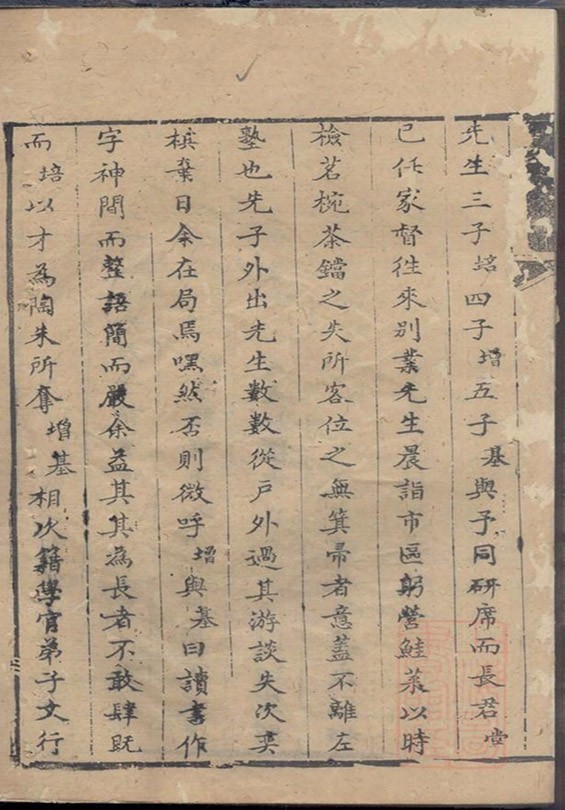 先生三子培四子增五子基與予同研席而長君堂
已任家督徃來別業先生晨詣市區躬營鮭菜以時
檢茗椀茶鐺之失所客位之無箕帚者意蓋不離左
塾也先子外出先生數數從戶外過其游談失次奕
棋棄日余在局焉嘿然否則微呼增與基曰讀書作
字神閒而整語簡而嚴余益其其為長者不敢肆既
而培以才為陶朱所奪增基相次籍學官弟子文行